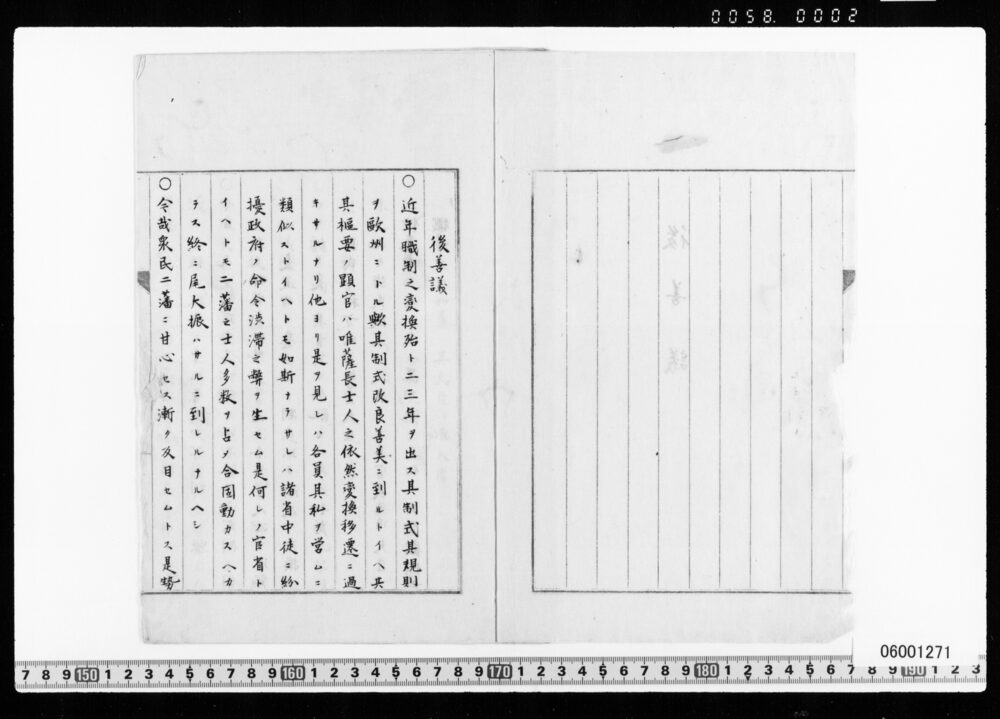 0058. 0002
後善議
○近年職制之変換殆ト二三年ヲ出ス其制式其規則
ヲ歐州ニトル歟其制式改良善美ニ到ルトイヘ共
其樞要ノ顕官ハ唯薩長士人之依然変換移遷ニ過
キサルナリ他ヨリ是ヲ見レハ各員其私ヲ営ムニ
類似ストイヘトモ如斯ナラサレハ諸省中徒ニ紛
擾政府ノ命令渋滞之弊ヲ生セム是何レノ官省ト
イヘトモ二藩之士人多数ヲ占メ合固動カスヘカ
ラス終ニ尾大振ハサルニ到レルナルヘシ
○令哉衆民二藩ニ甘心セス漸ク反目セムトス是勢
06001271
7 8 9 150 1 2 3 4 5 6 7 8 9 160 1 2 3 4 5 6 7 8 9 170 1 2 3 4 5 6 7 8 9 180 1 2 3 4 5 6 7 8 9 190 1 2 3